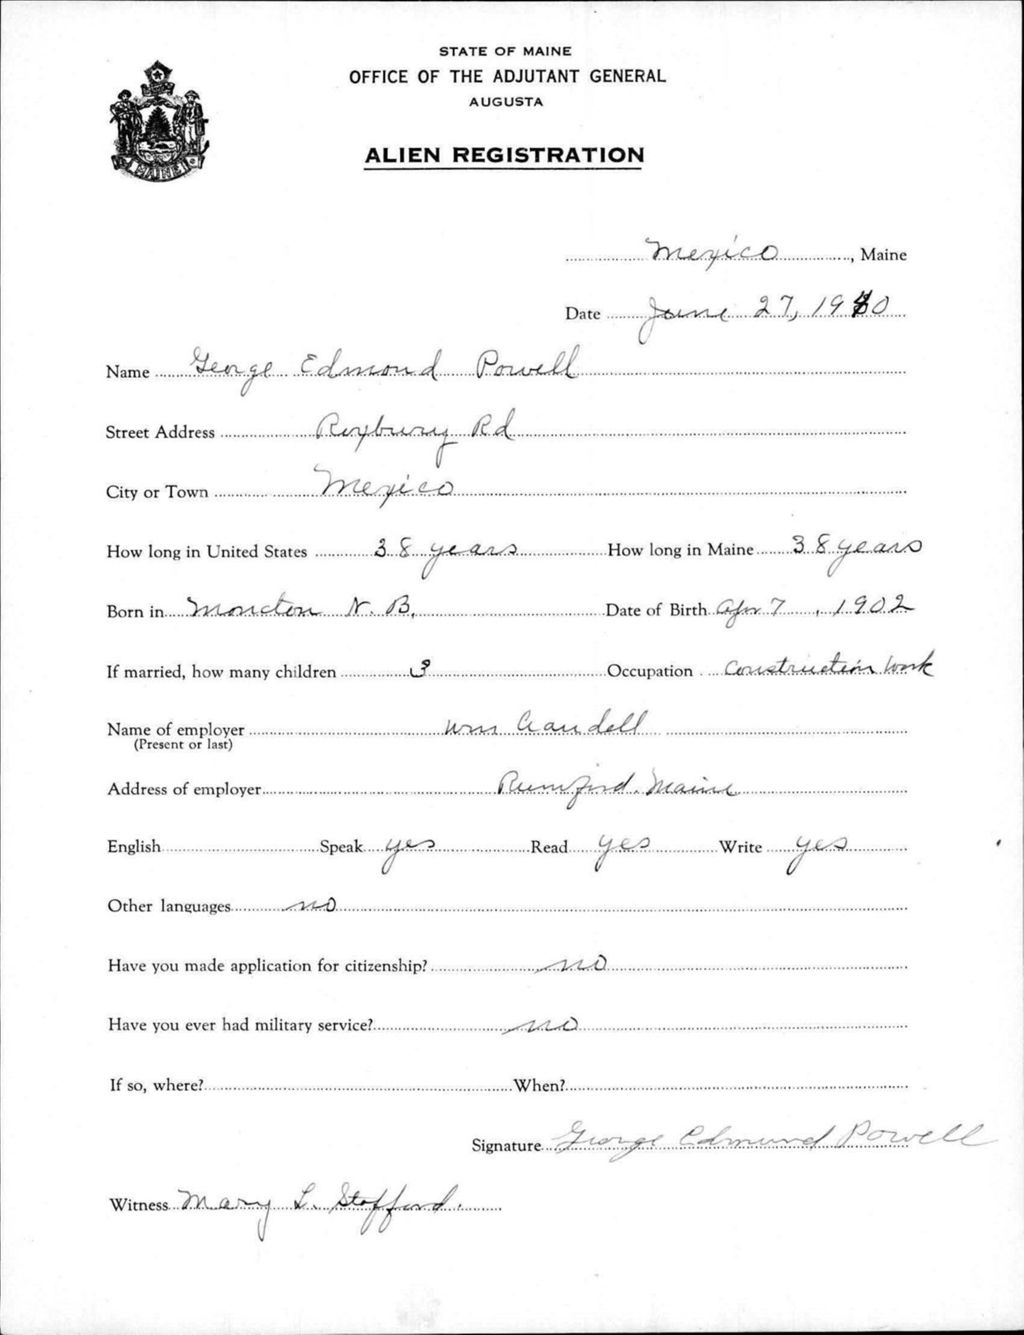 STATE OF MAINE
OFFICE OF THE ADJUTANT GENERAL
AUGUSTA
ALIEN REGISTRATION
MAINE
Mexico, Maine
Date June 27, 1940
Name George Edmond Powell
Street Address Roxbury Rd
City or Town Mexico
How long in United States 38 years How long in Maine 38 years
Born in Moncton N. B. Date of Birth Apr 7, 1902
If married, how many children 3 Occupation Construction Work
Name of employer Wm
(Present or last)
Address of employer Rumford, Maine
English Speak yes Read yes Write yes
Other languages no
Have you made application for citizenship? no
Have you ever had military service? no
If so, where? When?
Signature George Edmund Powell
Witness Mary L. Stafford.